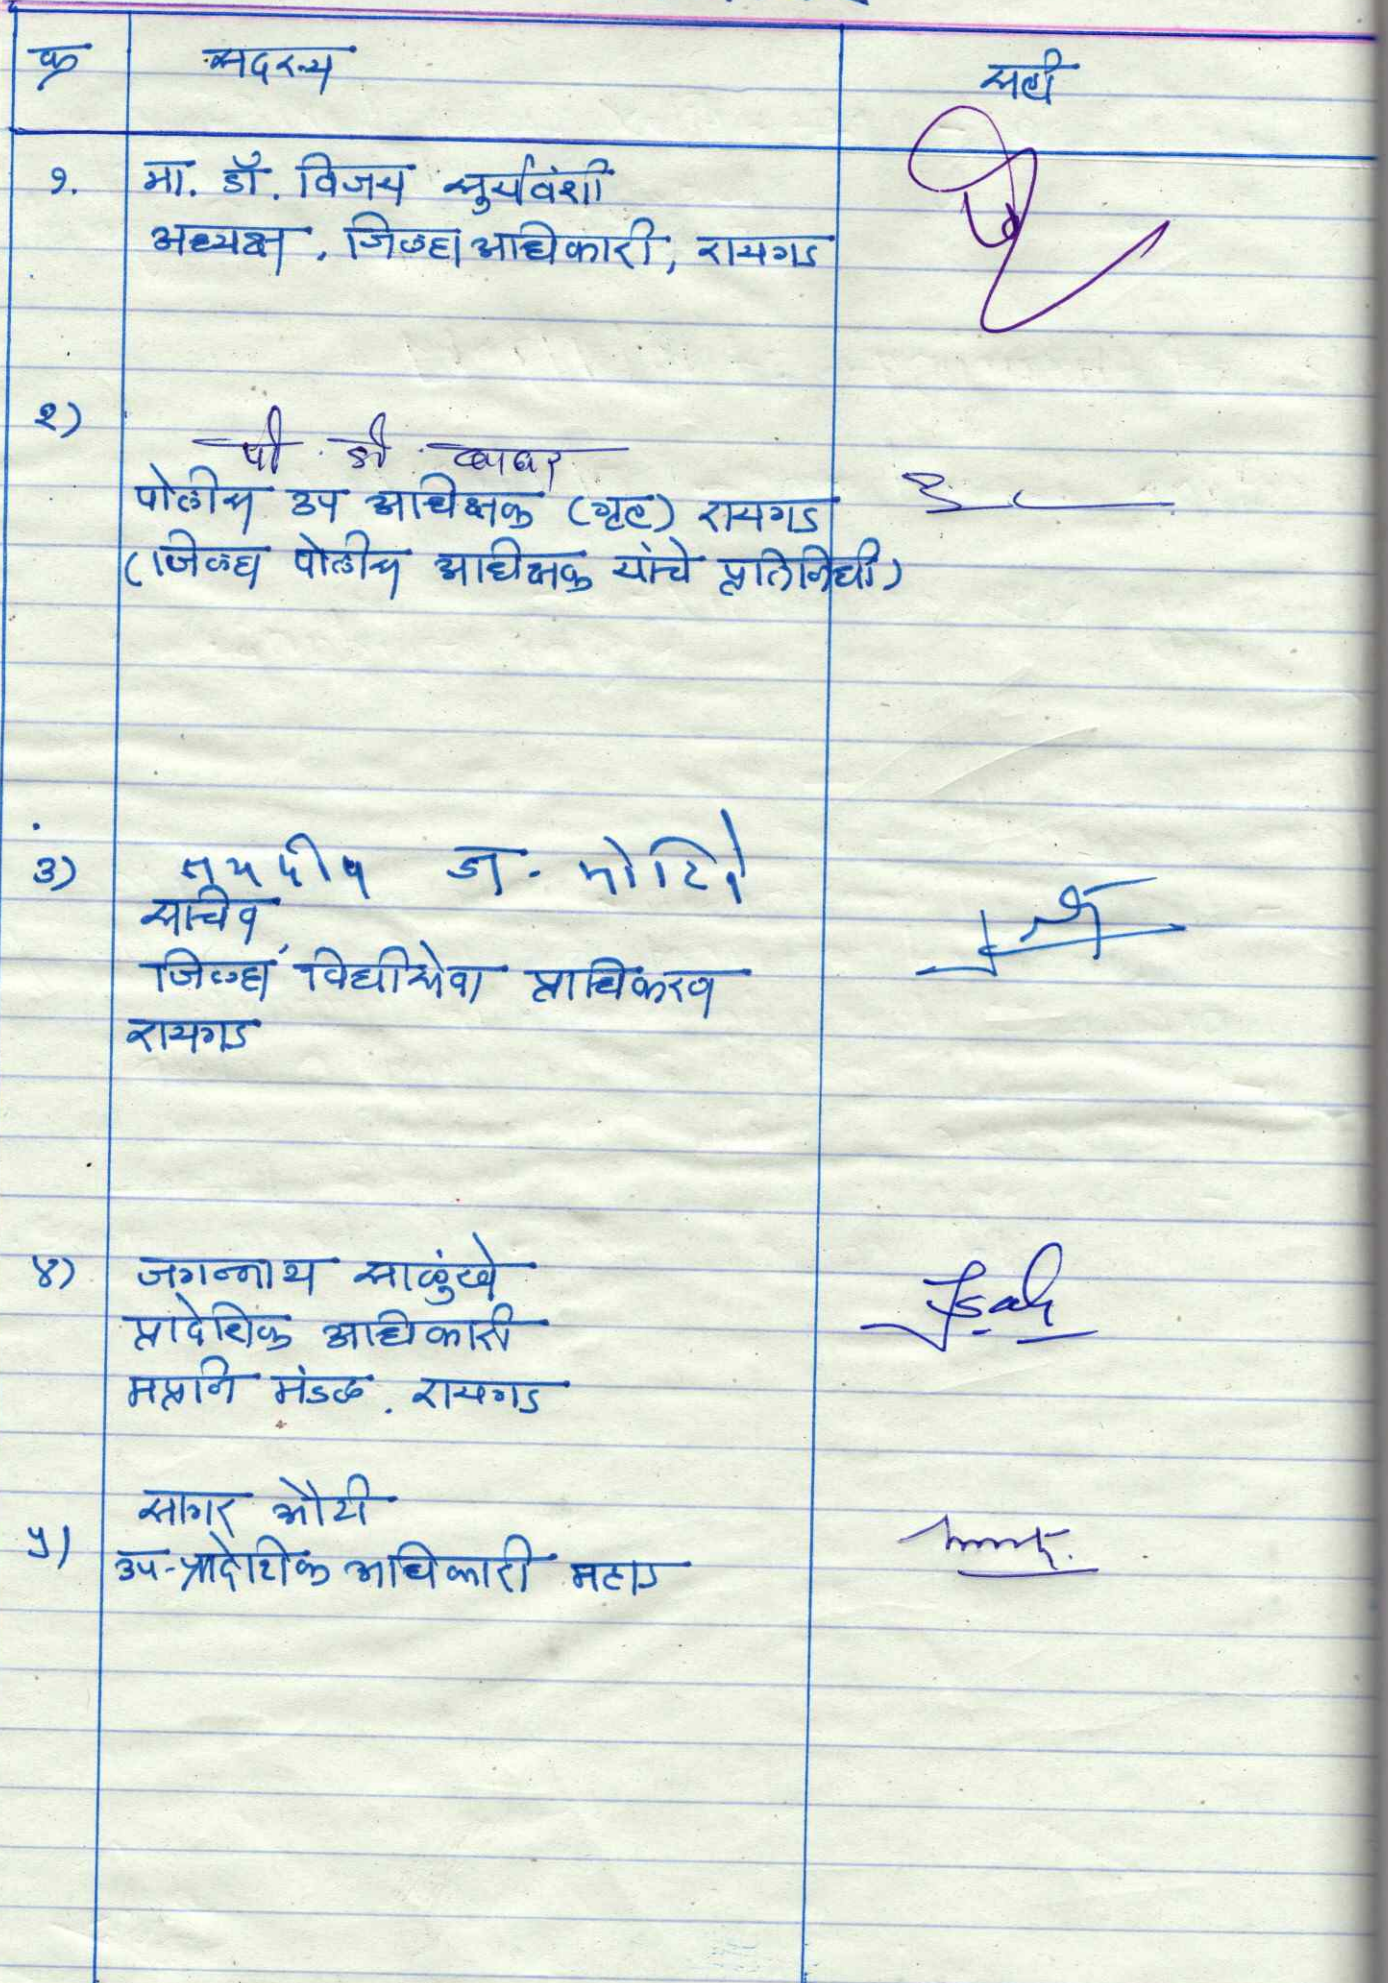 क्र सदस्य सही
१. मा. डॉ. विजय सुर्यवंशी
अध्यक्ष, जिल्हाअधिकारी, रायगड
२)
पी. डी.
पोलीस उप अधिक्षक (गृह) रायगड
(जिल्हा पोलीस अधीक्षक यांचे प्रतिनिधी)
३) जयदीप मोहिते
सचिव,
जिल्हा विधीसेवा प्राधिकरण
रायगड
४) जगन्नाथ साळुंखे
प्रादेशिक अधिकारी
मप्रनि मंडळ. रायगड
सागर औटी
५) उप-प्रादेशिक अधिकारी महाड